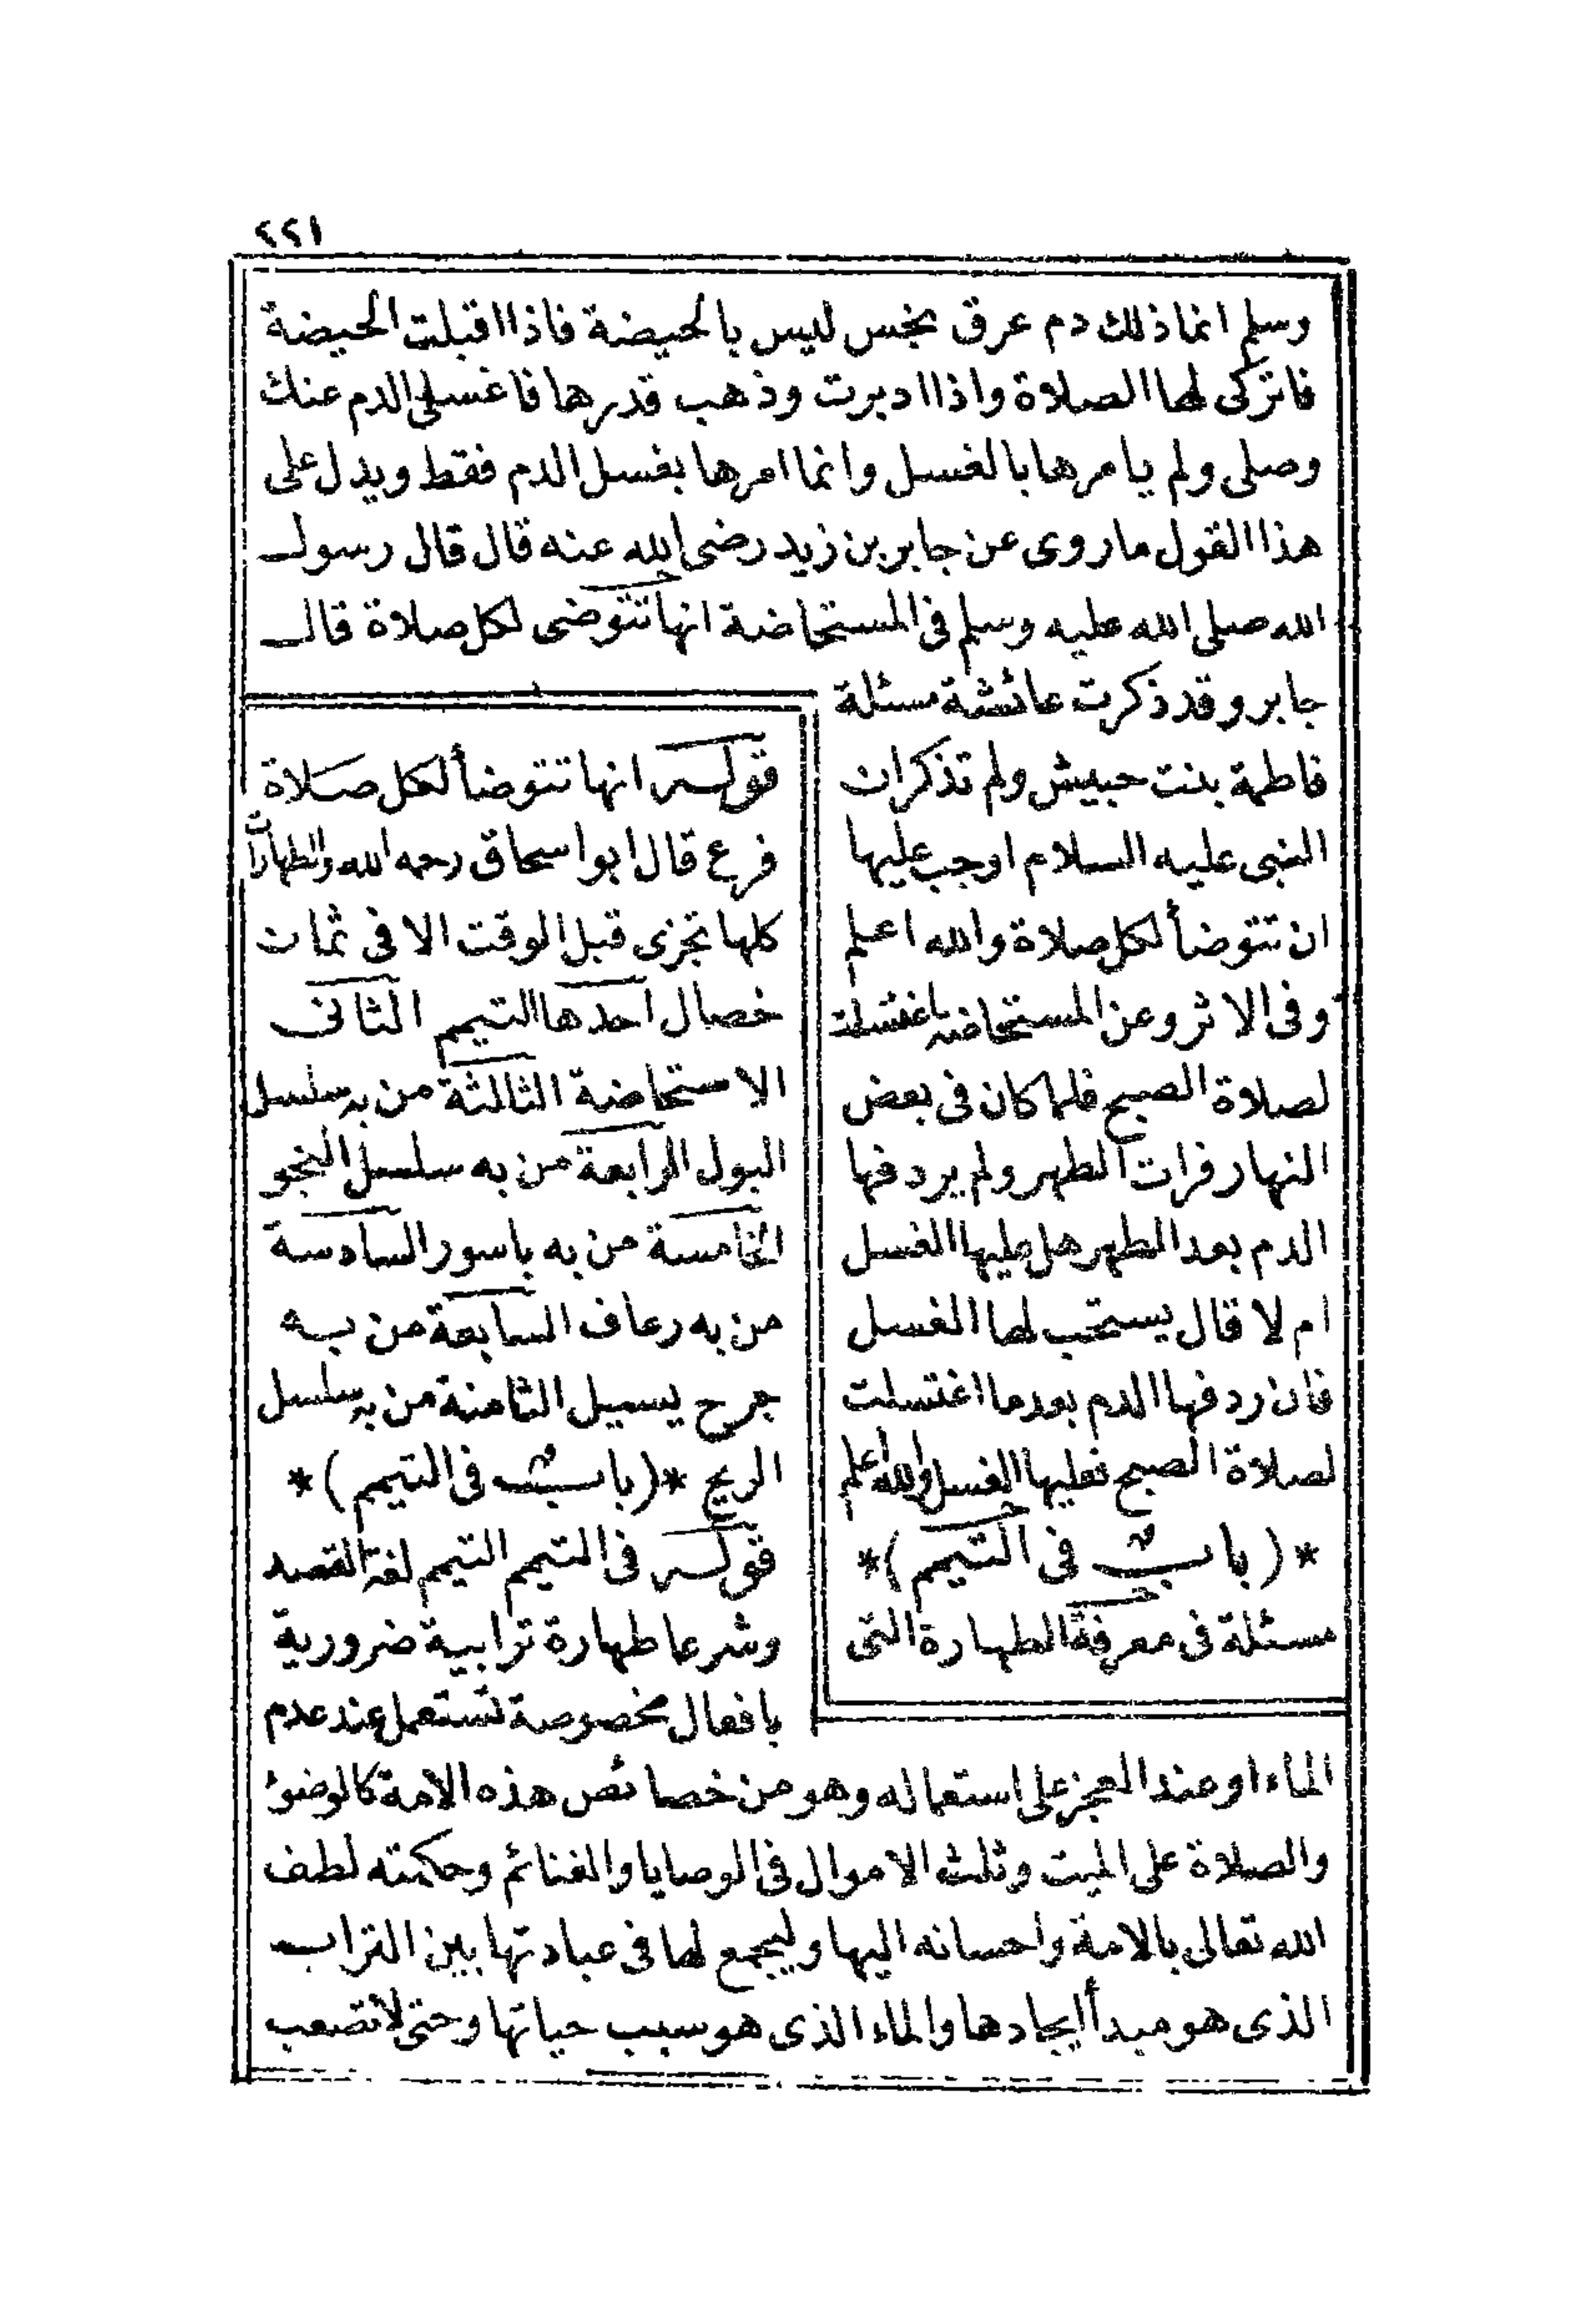 ٢٢١
وسلم انما ذلك دم عرق نجس ليس بالحيضة فاذا اقبلت الحيضة
فاتركى لها الصلاة واذا ادبرت وذهب قدرها فاغسلى الدم عنك
وصلى ولم يامرها بالغسل وانما امرها بغسل الدم فقط ويدل على
هذا القول ما روى عن جابر بن زيد رضى الله عنه قال قال رسول
الله صلى الله عليه وسلم فى المستحاضة انها تتوضى لكل صلاة قال
جابر وقد ذكرت عائشة مسئلة
فاطمة بنت حبيش ولم تذكر ان
النبى عليه السلام اوجب عليها
ان تتوضأ لكل صلاة والله اعلم
وفى الاثر وعن المستحاضة اغتسلت
لصلاة الصبح فلما كان فى بعض
النهار فرات الطهر ولم يردفها
الدم بعد الطهر هل عليها الغسل
ام لا قال يستحب لها الغسل
فان ردفها الدم بعدما اغتسلت
لصلاة الصبح فعليها الغسل والله اعلم
*(باب فى التيمم)*
مسئلة فى معرفة الطهارة التى
قوله انها تتوضأ لكل صلاة
فرع قال ابو اسحاق رحمه الله والطهارات
كلها تجزى قبل الوقت الا فى ثمان
خصال احدها التيمم الثانى
الاستحاضة الثالثة من به سلسل
البول الرابعة من به سلسل النجو
الخامسة من به باسور السادسة
من به رعاف السابعة من به
جرح يسيل الثامنة من به سلسل
الريح *(باب فى التيمم)*
قوله فى التيمم التيمم لغة القصد
وشرعا طهارة ترابية ضرورية
بافعال مخصوصة تستعمل عند عدم
الماء او عند العجز على استعماله وهو من خصائص هذه الامة كالوضوء
والصلاة على الميت وثلث الاموال فى الوصايا والغنائم وحكمته لطف
الله تعالى بالامة واحسانه اليها وليجمع لها فى عبادتها بين التراب
الذى هو مبدأ ايجادها والماء الذى هو سبب حياتها وحتى لا تصعب